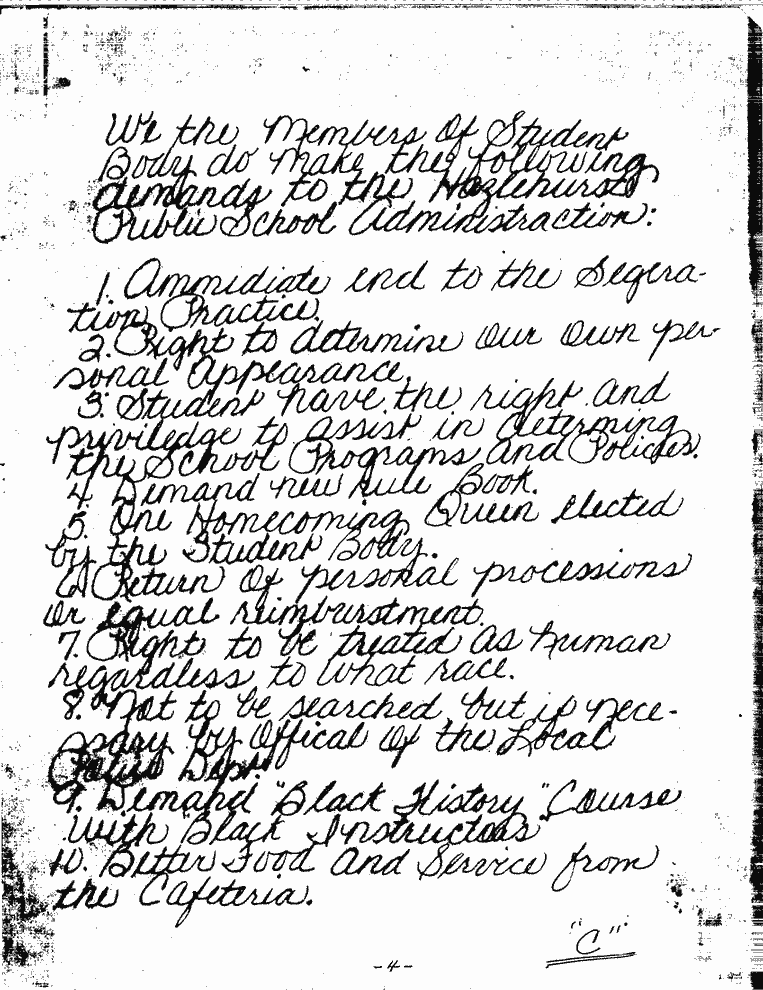 We the Members Of Student
Body do make the following
demands to the Hazlehurst
Public School Administraction:
1. Ammidiate end to the Segera-
tion Practice.
2. Right to determine our own per-
sonal Appearance.
3. Student have the right and
priviledge to assist in determing
the School Programs And Policies.
4. Demand new rule Book.
5. One Homecoming Queen elected
by the Student Body.
6. Return Of personal processions
or equal reimburstment.
7. Right to be treated as human
regardless to what race.
8. Not to be searched but if nece-
ssary by Offical of the Local
Police Dept.
9. Demand "Black History" Course
With "Black Instructors"
10. Better Food And Service from
the Cafeteria.
"C"
-4-